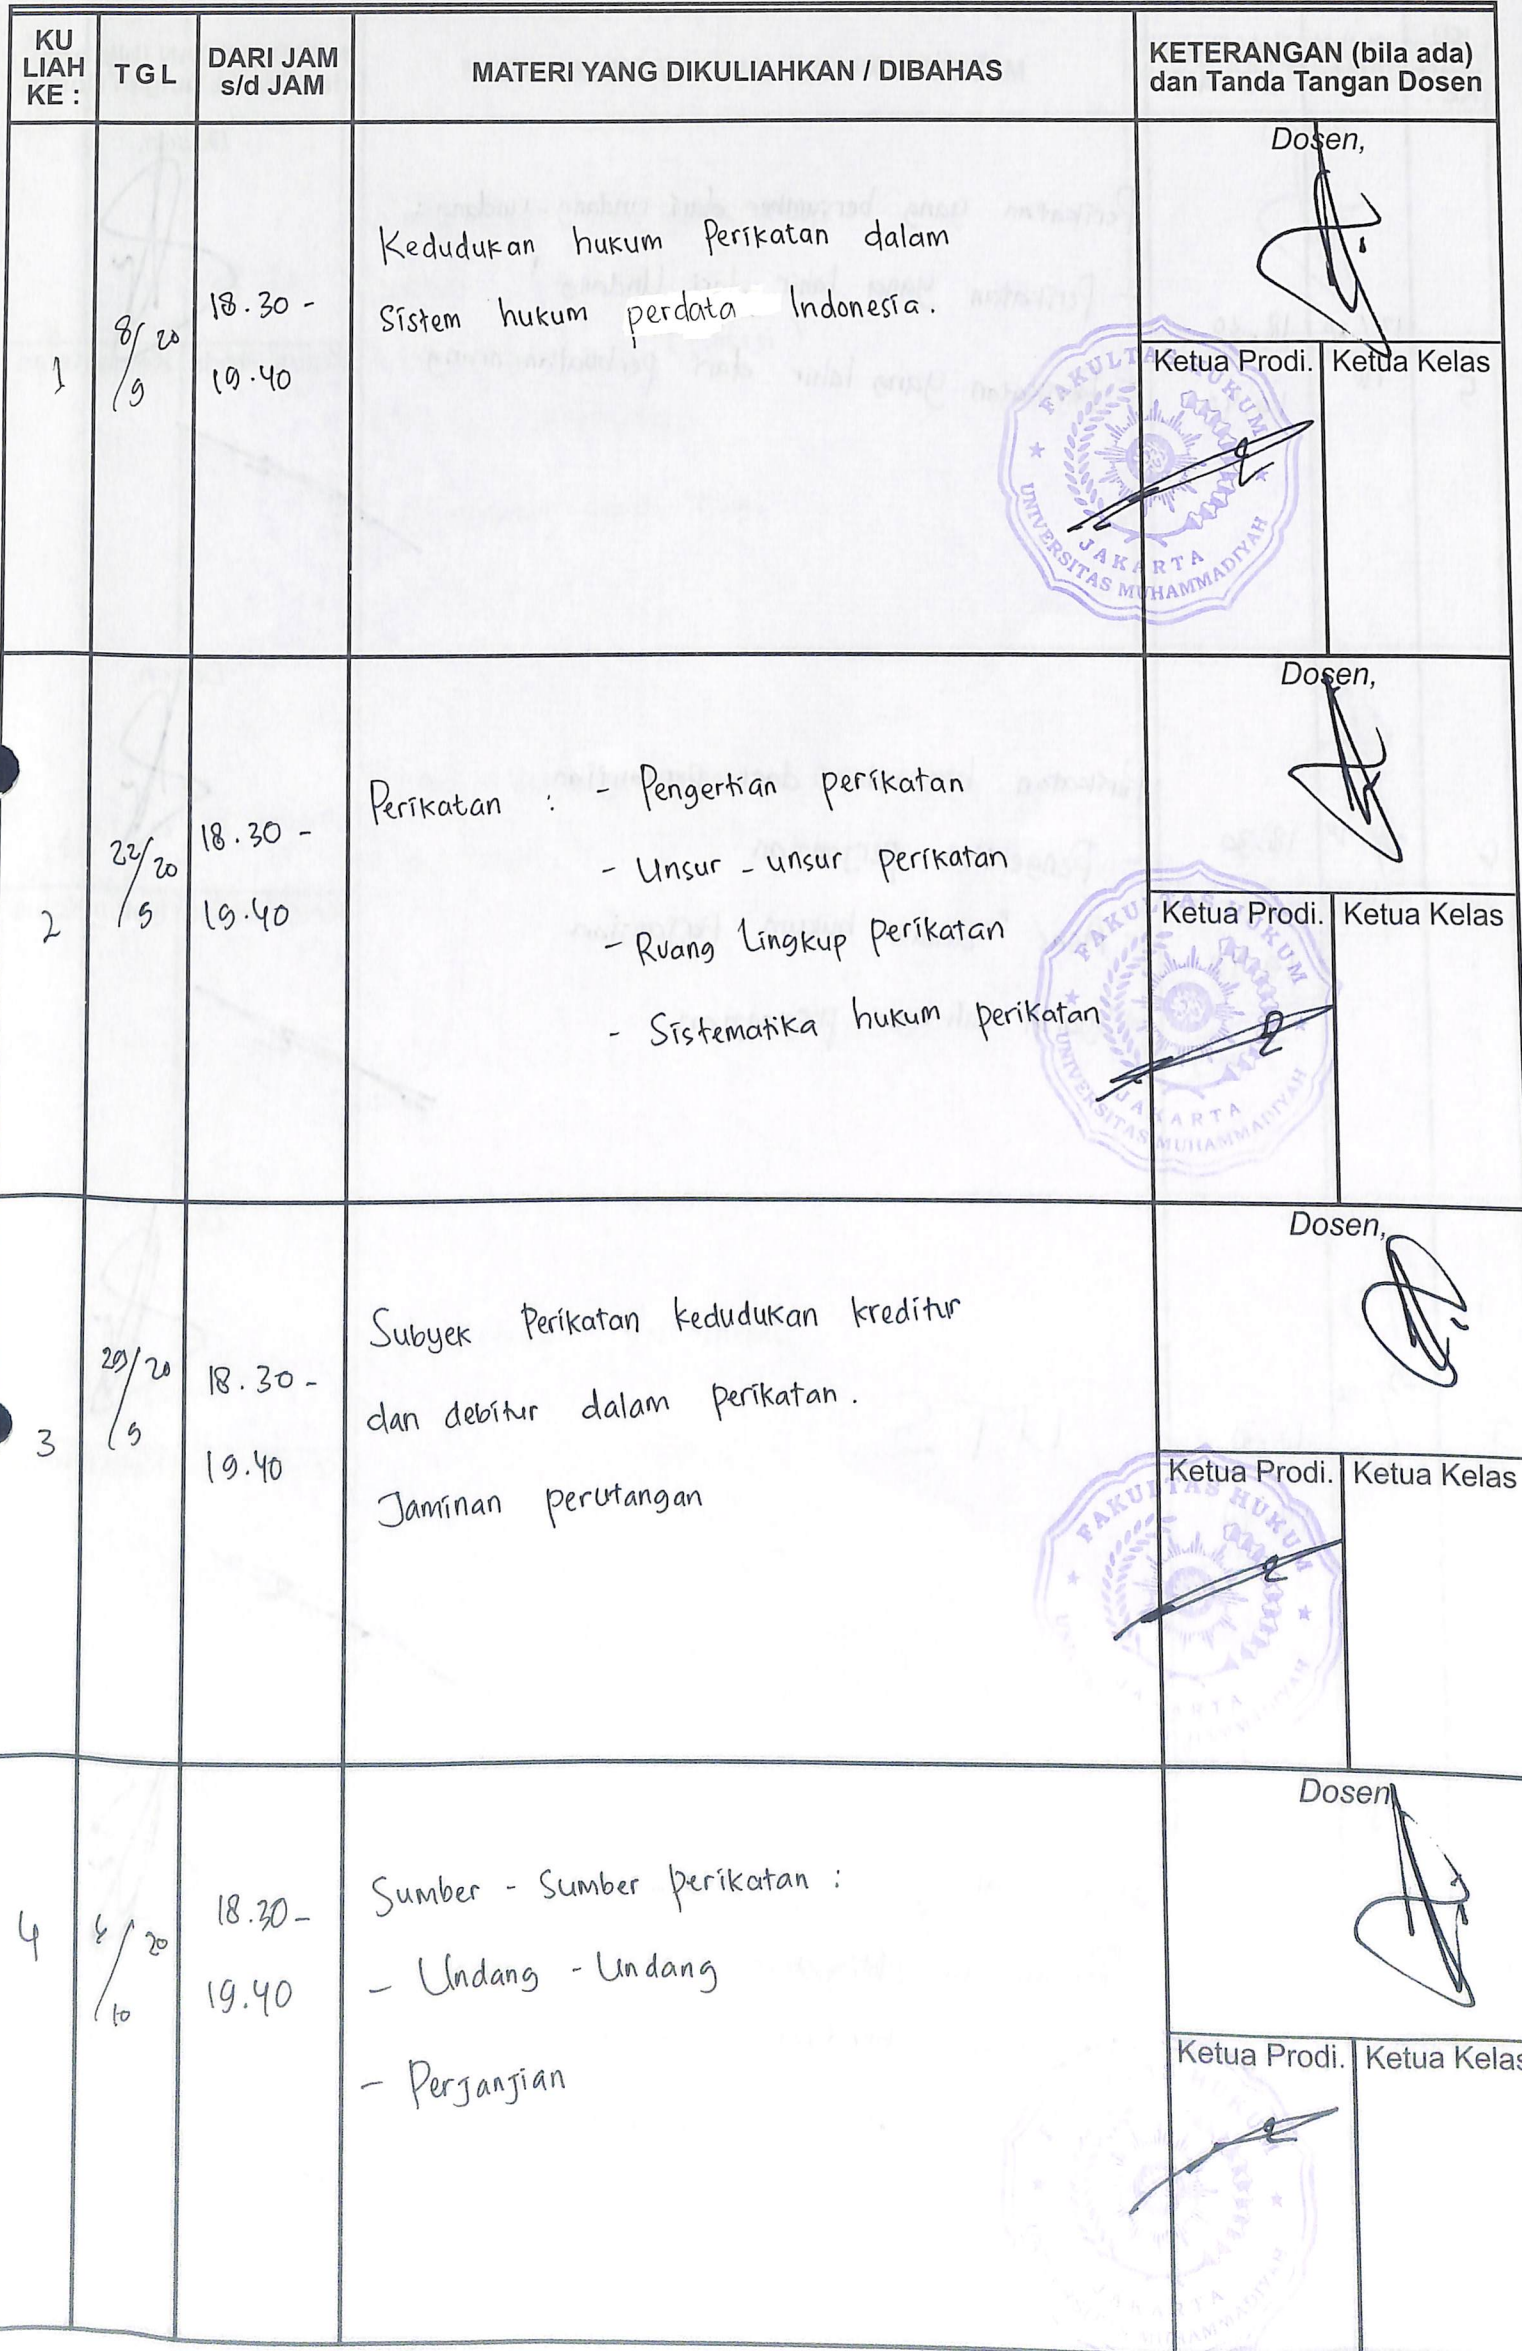 KU
LIAH
KE :
TGL
DARI JAM
s/d JAM
MATERI YANG DIKULIAHKAN / DIBAHAS
KETERANGAN (bila ada)
dan Tanda Tangan Dosen
1
8/20
/9
18.30 -
19.40
Kedudukan hukum Perikatan dalam
Sistem hukum perdata Indonesia.
Dosen,
Ketua Prodi.
Ketua Kelas
FAKULTAS HUKUM
UNIVERSITAS MUHAMMADIYAH
JAKARTA
2
22/20
/9
18.30 -
19.40
Perikatan : - Pengertian perikatan
- Unsur - unsur perikatan
- Ruang Lingkup perikatan
- Sistematika hukum perikatan
Dosen,
Ketua Prodi.
Ketua Kelas
FAKULTAS HUKUM
UNIVERSITAS MUHAMMADIYAH
JAKARTA
3
29/20
/9
18.30 -
19.40
Subyek Perikatan kedudukan kreditur
dan debitur dalam perikatan.
Jaminan perutangan
Dosen,
Ketua Prodi.
Ketua Kelas
FAKULTAS HUKUM
4
/20
/10
18.30 -
19.40
Sumber - Sumber perikatan :
- Undang - Undang
- Perjanjian
Dosen
Ketua Prodi.
Ketua Kelas